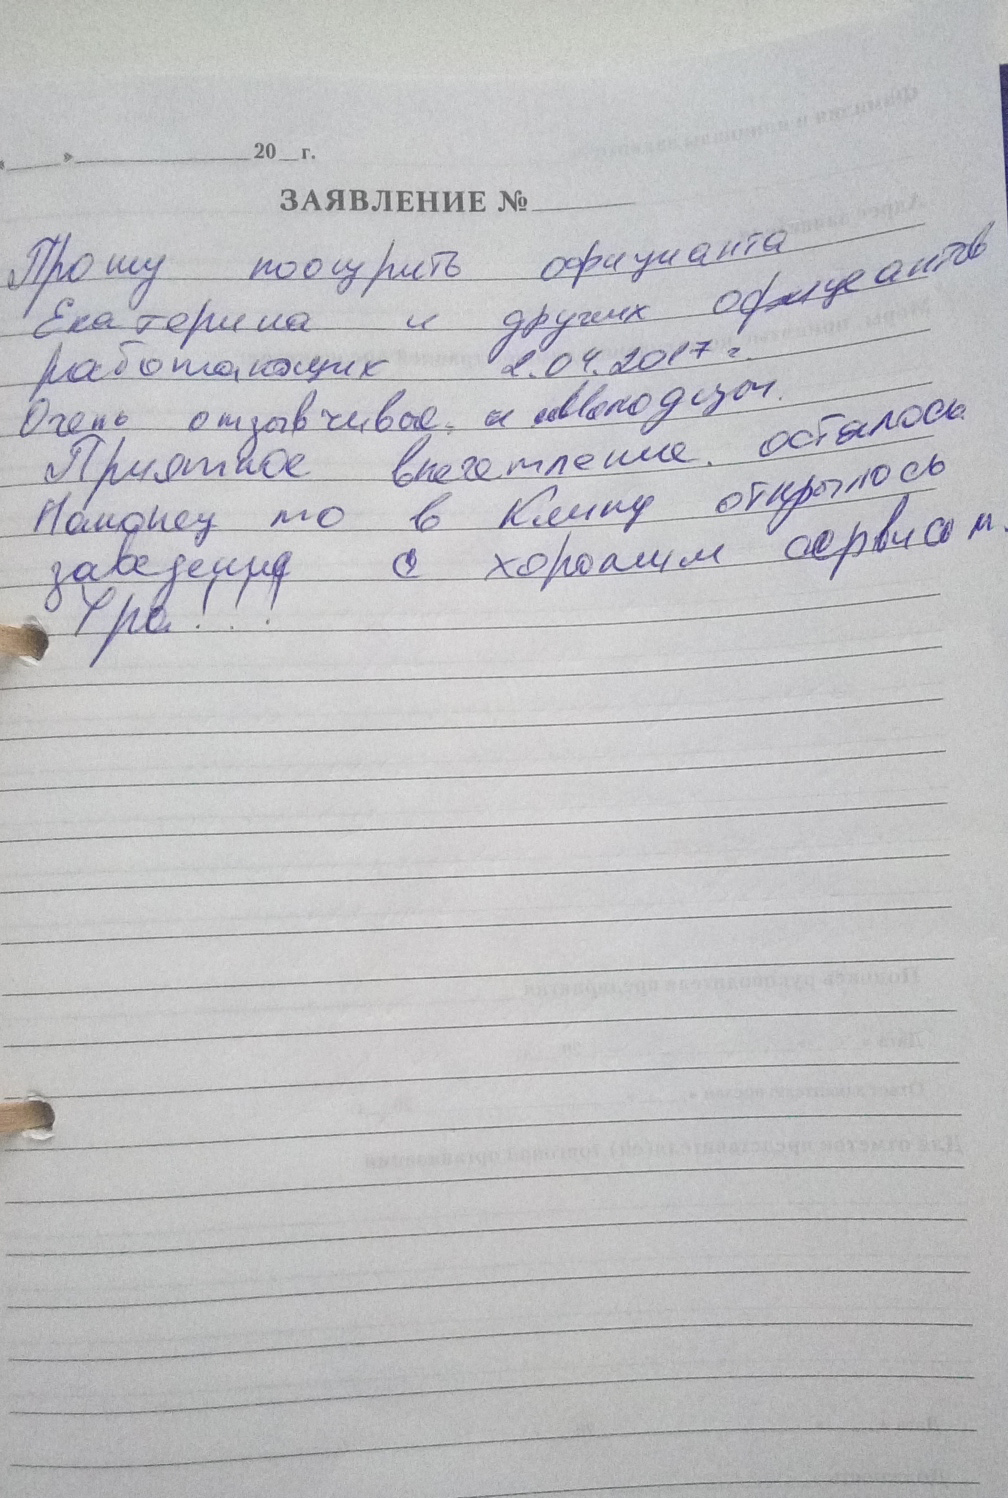 « » 20 г.
ЗАЯВЛЕНИЕ №
Прошу поощрить официанта
Екатерина и других официантов
работающих 2.04.2017 г.
Очень отзывчивое. и
Приятное впечетление. осталось
Наконец то в Клину открылось
заведения с хорошим сервисом.
Ура!!!